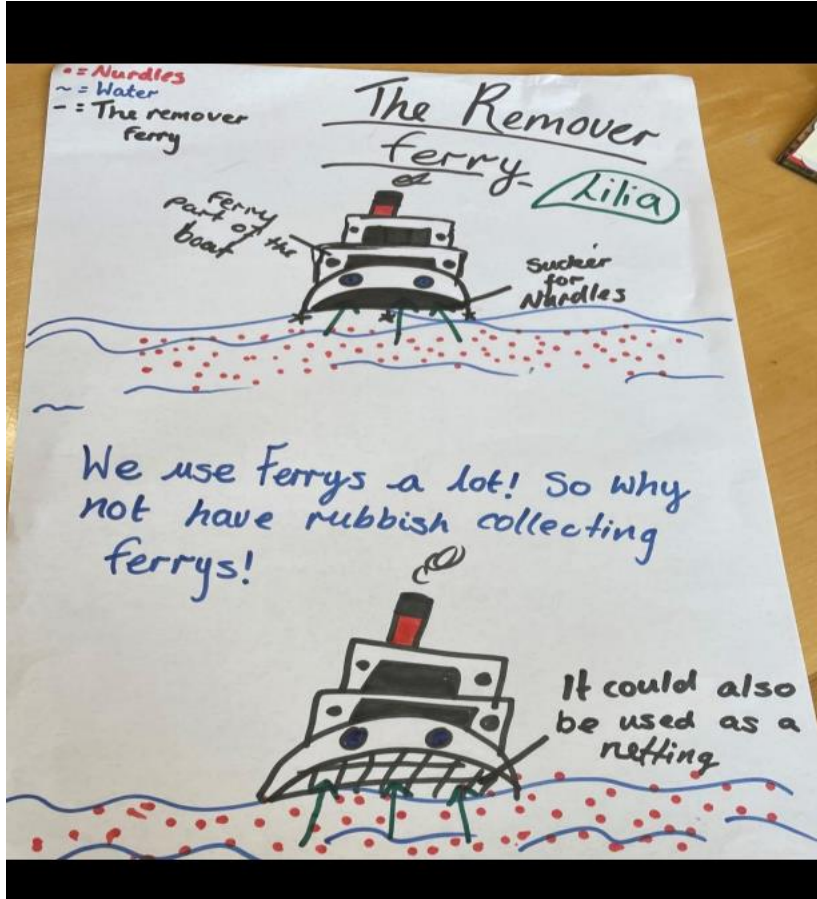 • = Nurdles
~ = Water
- = The remover
Ferry
The Remover
ferry.
Lilia
Ferry
part of the
boat
Sucker
for
Nurdles
We use Ferrys a lot! So why
not have rubbish collecting
ferrys!
It could also
be used as a
netting